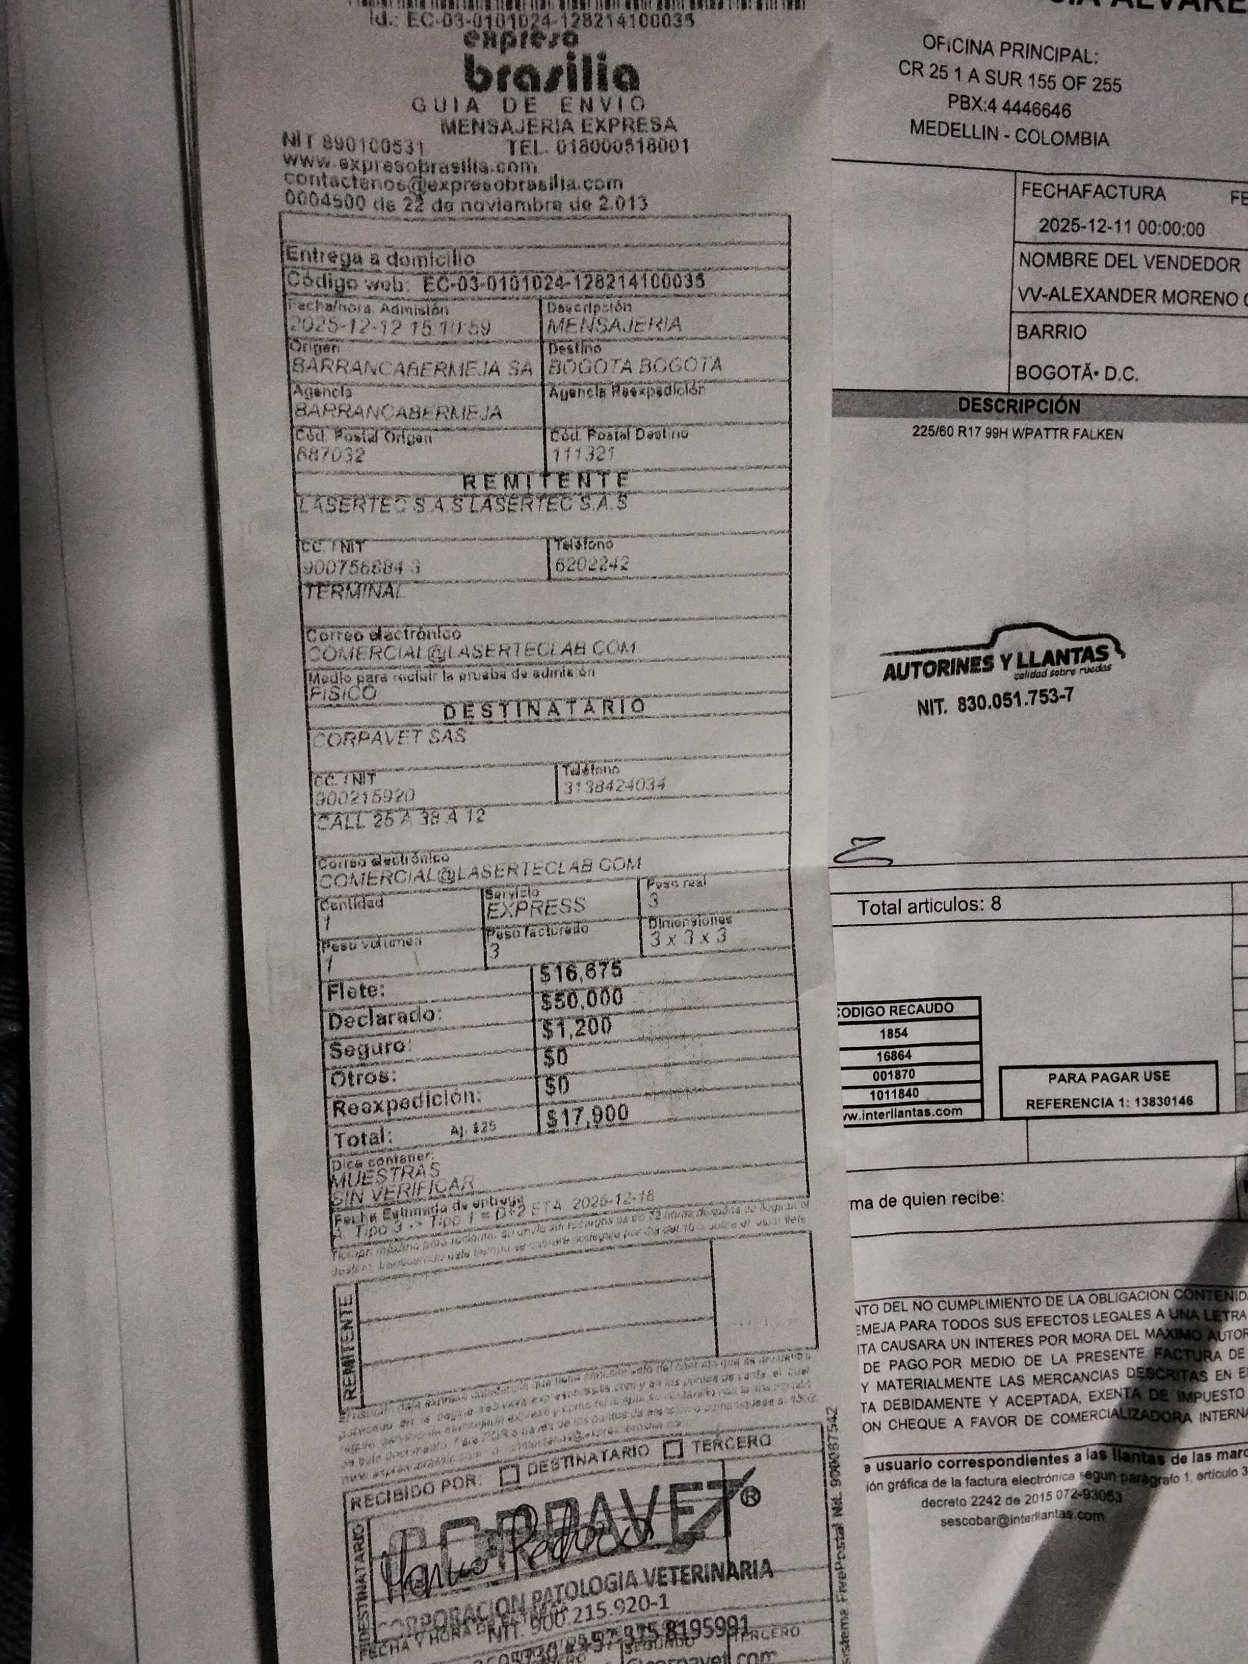 Id.: EC-03-0101024-128214100035
expreso
brasilia
GUIA DE ENVIO
MENSAJERIA EXPRESA
NIT 890100531 TEL. 018000518001
www.expresobrasilia.com
contactenos@expresobrasilia.com
0004500 de 22 de noviembre de 2.013
Entrega a domicilio
Código web: EC-03-0101024-128214100035
Fecha/hora Admisión Descripción
2025-12-12 15:10:59 MENSAJERIA
Origen Destino
BARRANCABERMEJA SA BOGOTA BOGOTA
Agencia Agencia Reexpedición
BARRANCABERMEJA
Cód. Postal Origen Cód. Postal Destino
687032 111321
REMITENTE
LASERTEC S.A.S LASERTEC S.A.S
CC. / NIT Teléfono
900756884 3 6202242
TERMINAL
Correo electrónico
COMERCIAL@LASERTECLAB COM
Medio para recibir la prueba de admisión
FISICO
DESTINATARIO
CORPAVET SAS
CC. / NIT Teléfono
900215920 3138424034
CALL 25 A 38 A 12
Correo electrónico
COMERCIAL@LASERTECLAB COM
Cantidad Servicio Peso real
1 EXPRESS 3
Peso volumen Peso facturado Dimensiones
1 3 3 x 3 x 3
Flete: $16,675
Declarado: $50,000
Seguro: $1,200
Otros: $0
Reexpedición: $0
Total: Aj. $25 $17,900
Dice contener:
MUESTRAS
SIN VERIFICAR
Fecha Estimada de entrega
Tipo 3 -> Tipo 1 = D+2 ETA 2025-12-16
REMITENTE
RECIBIDO POR: DESTINATARIO TERCERO
DESTINATARIO
CORPAVET®
CORPORACION PATOLOGIA VETERINARIA
NIT. 900.215.920-1
FECHA Y HORA DE ENTREGA
SEGUNDO TERCERO
Sistema FivePostal Nit. 900087542
OFICINA PRINCIPAL:
CR 25 1 A SUR 155 OF 255
PBX:4 4446646
MEDELLIN - COLOMBIA
FECHAFACTURA FE
2025-12-11 00:00:00
NOMBRE DEL VENDEDOR
VV-ALEXANDER MORENO
BARRIO
BOGOTÃ• D.C.
DESCRIPCIÓN
225/60 R17 99H WPATTR FALKEN
AUTORINES Y LLANTAS
calidad sobre ruedas
NIT. 830.051.753-7
Total articulos: 8
ODIGO RECAUDO
1854
16864
001870
1011840
ww.interllantas.com
PARA PAGAR USE
REFERENCIA 1: 13830146
ma de quien recibe:
NTO DEL NO CUMPLIMIENTO DE LA OBLIGACION CONTENID
EMEJA PARA TODOS SUS EFECTOS LEGALES A UNA LETRA
ITA CAUSARA UN INTERES POR MORA DEL MAXIMO AUTOR
DE PAGO.POR MEDIO DE LA PRESENTE FACTURA DE
Y MATERIALMENTE LAS MERCANCIAS DESCRITAS EN E
TA DEBIDAMENTE Y ACEPTADA, EXENTA DE IMPUESTO
ON CHEQUE A FAVOR DE COMERCIALIZADORA INTERNA
e usuario correspondientes a las llantas de las marc
ión gráfica de la factura electrónica segun parágrafo 1, artículo 3
decreto 2242 de 2015 072-93053
sescobar@interllantas.com